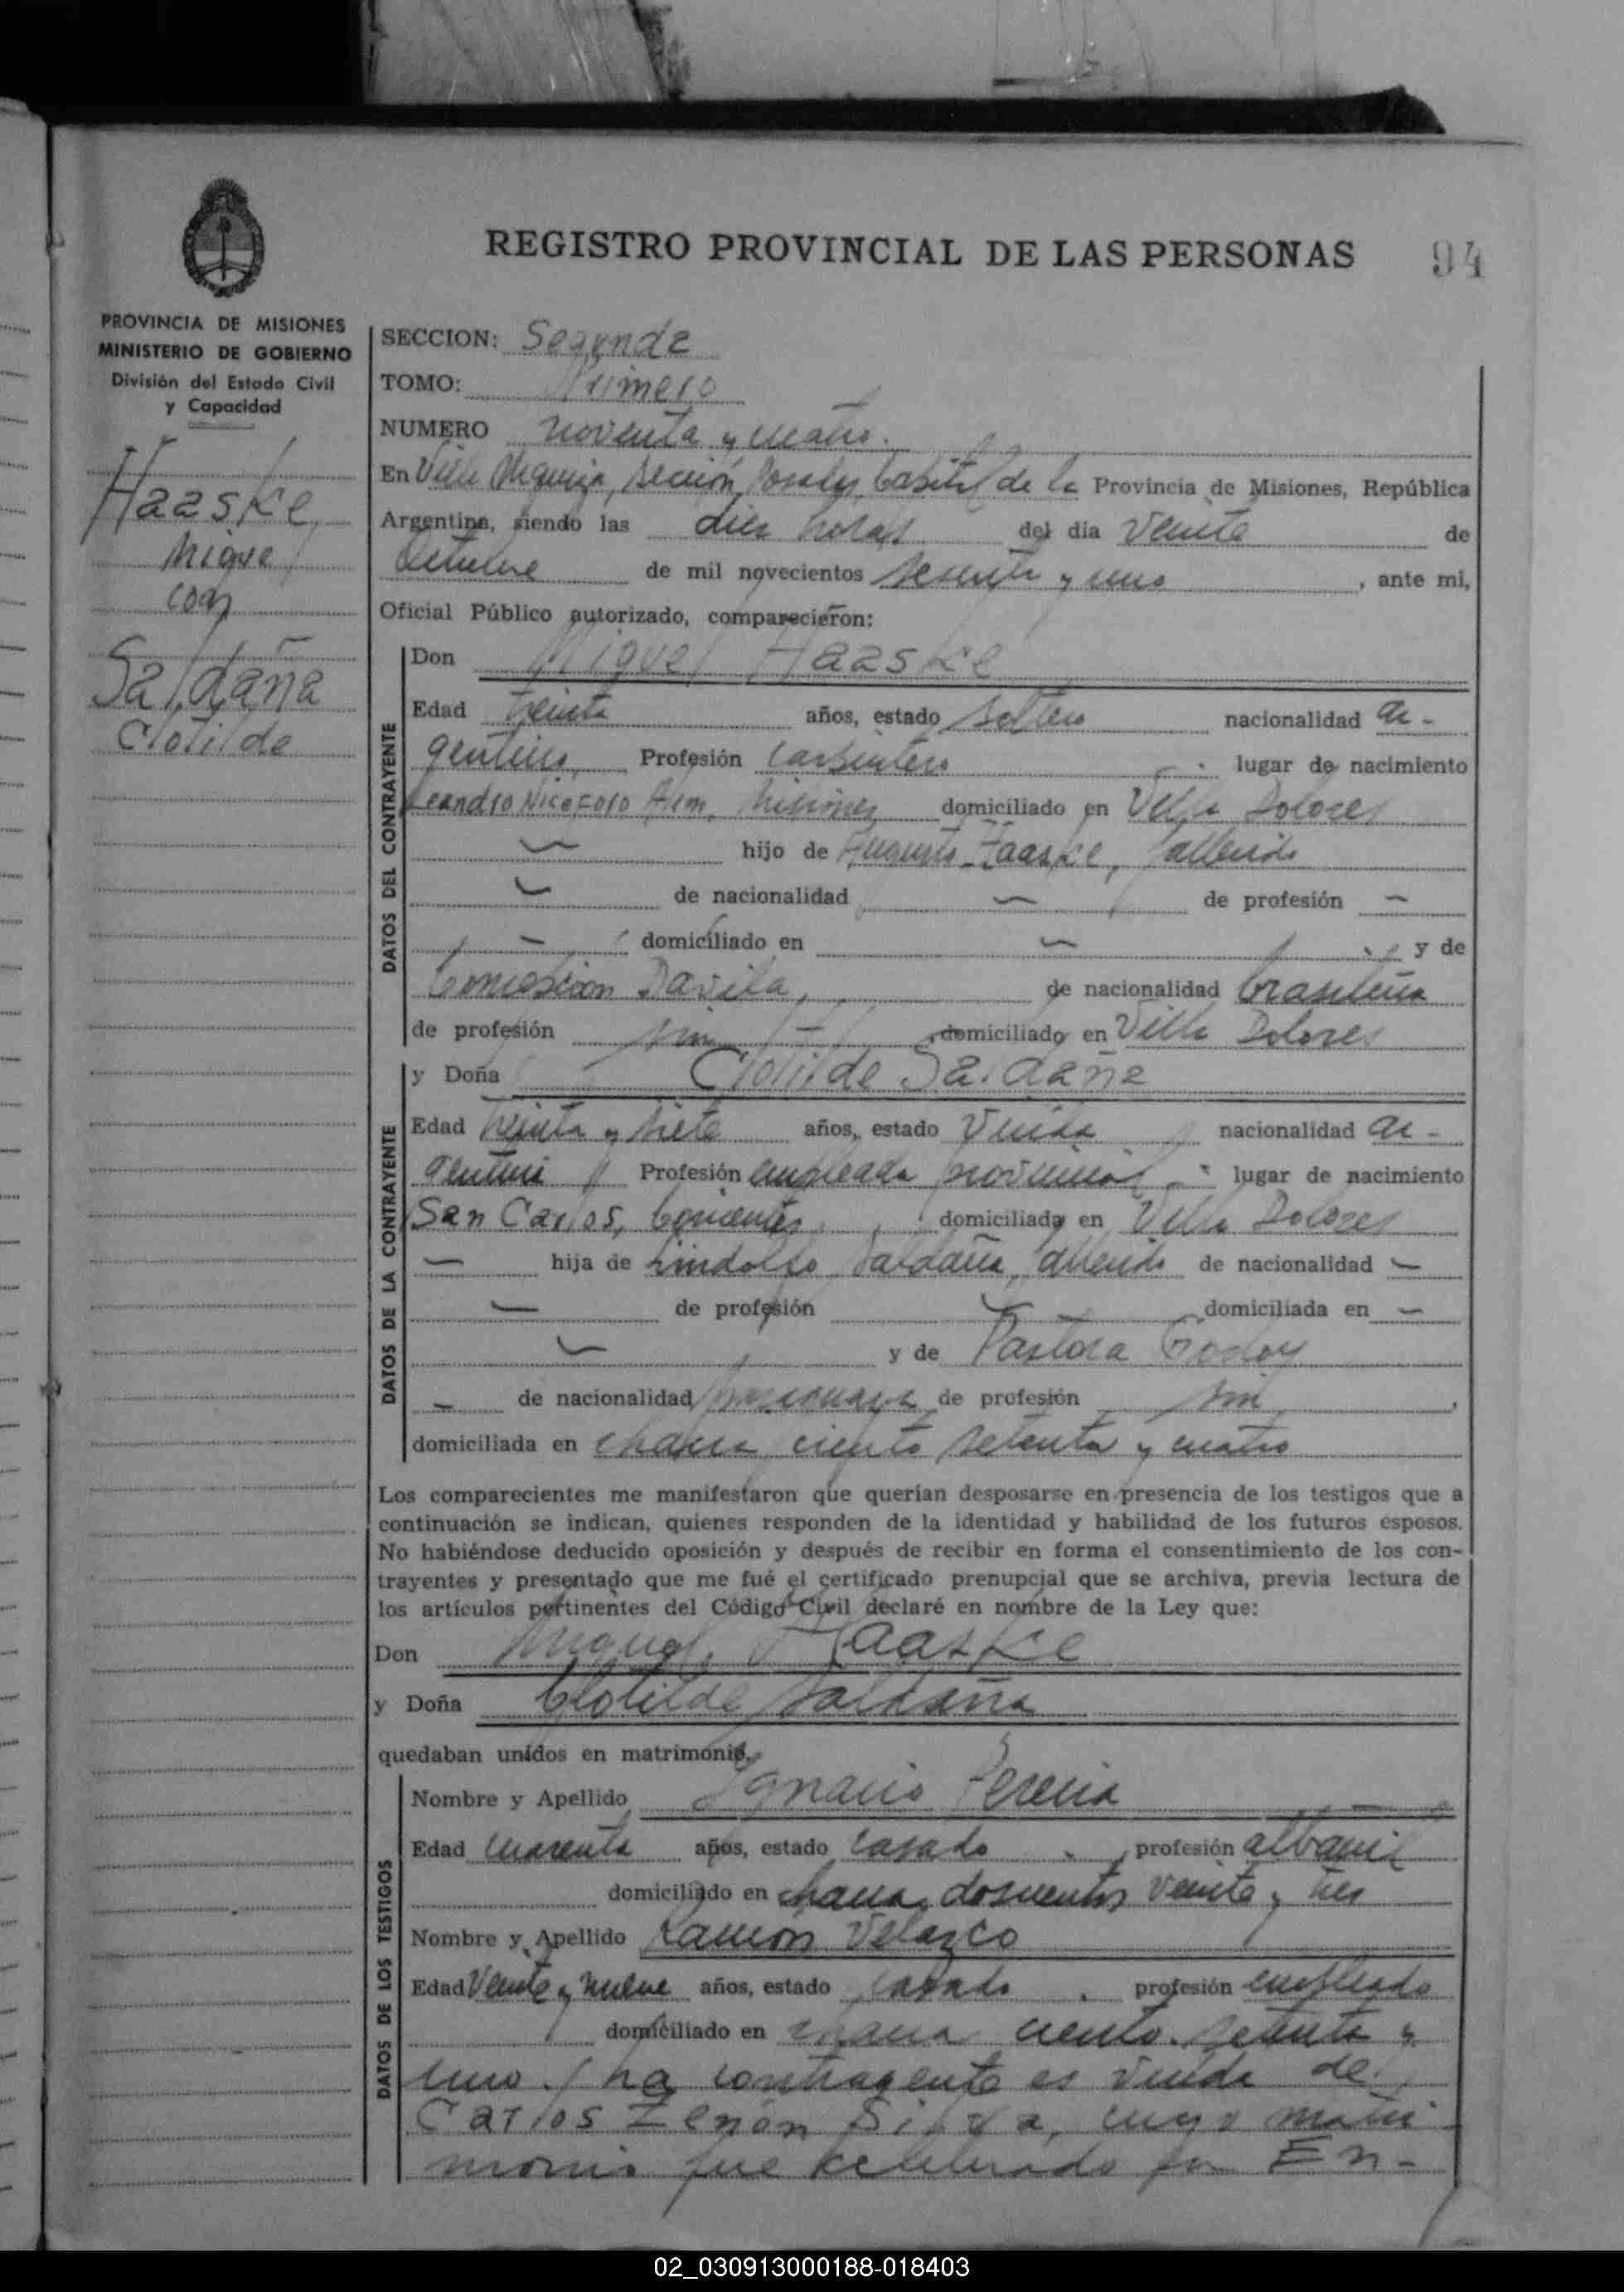 REGISTRO PROVINCIAL DE LAS PERSONAS 94
PROVINCIA DE MISIONES
MINISTERIO DE GOBIERNO
División del Estado Civil
y Capacidad
Haaske
Miguel
con
Saldaña
Clotilde
SECCION: Segunda
TOMO: Primero
NUMERO noventa y cuatro.
En Villa Urquiza, sección Posadas, Capital de la Provincia de Misiones, República
Argentina, siendo las diez horas del día veinte de
Octubre de mil novecientos sesenta y uno, ante mi,
Oficial Público autorizado, comparecieron:
DATOS DEL CONTRAYENTE
Don Miguel Haaske
Edad treinta años, estado soltero nacionalidad ar-
gentino, Profesión carpintero lugar de nacimiento
Leandro Niceforo Alem, Misiones domiciliado en Villa Dolores
— hijo de Augusto Haaske, fallecido
— de nacionalidad — de profesión —
— domiciliado en — y de
Concepcion Davila, de nacionalidad brasileña
de profesión sin domiciliado en Villa Dolores
DATOS DE LA CONTRAYENTE
y Doña Clotilde Saldaña
Edad treinta y siete años, estado Viuda nacionalidad ar-
gentina Profesión empleada provincial lugar de nacimiento
San Carlos, Corrientes, domiciliada en Villa Dolores
— hija de Lindolfo Saldaña, fallecido de nacionalidad —
— de profesión — domiciliada en —
— y de Pastora Godoy
— de nacionalidad de profesión sin,
domiciliada en chacra ciento setenta y cuatro
Los comparecientes me manifestaron que querían desposarse en presencia de los testigos que a
continuación se indican, quienes responden de la identidad y habilidad de los futuros esposos.
No habiéndose deducido oposición y después de recibir en forma el consentimiento de los con-
trayentes y presentado que me fué el certificado prenupcial que se archiva, previa lectura de
los artículos pertinentes del Código Civil declaré en nombre de la Ley que:
Don Miguel Haaske
y Doña Clotilde Saldaña
quedaban unidos en matrimonio.
DATOS DE LOS TESTIGOS
Nombre y Apellido Ignacio Pereira
Edad cuarenta años, estado casado profesión albañil
domiciliado en chacra doscientos veinte y tres
Nombre y Apellido Ramón Velazco
Edad Veinte y nueve años, estado casado profesión empleado
domiciliado en chacra ciento setenta y
uno. / La contrayente es viuda de
Carlos Zenón Silva, cuyo matri-
monio fue celebrado en En-
02_030913000188-018403